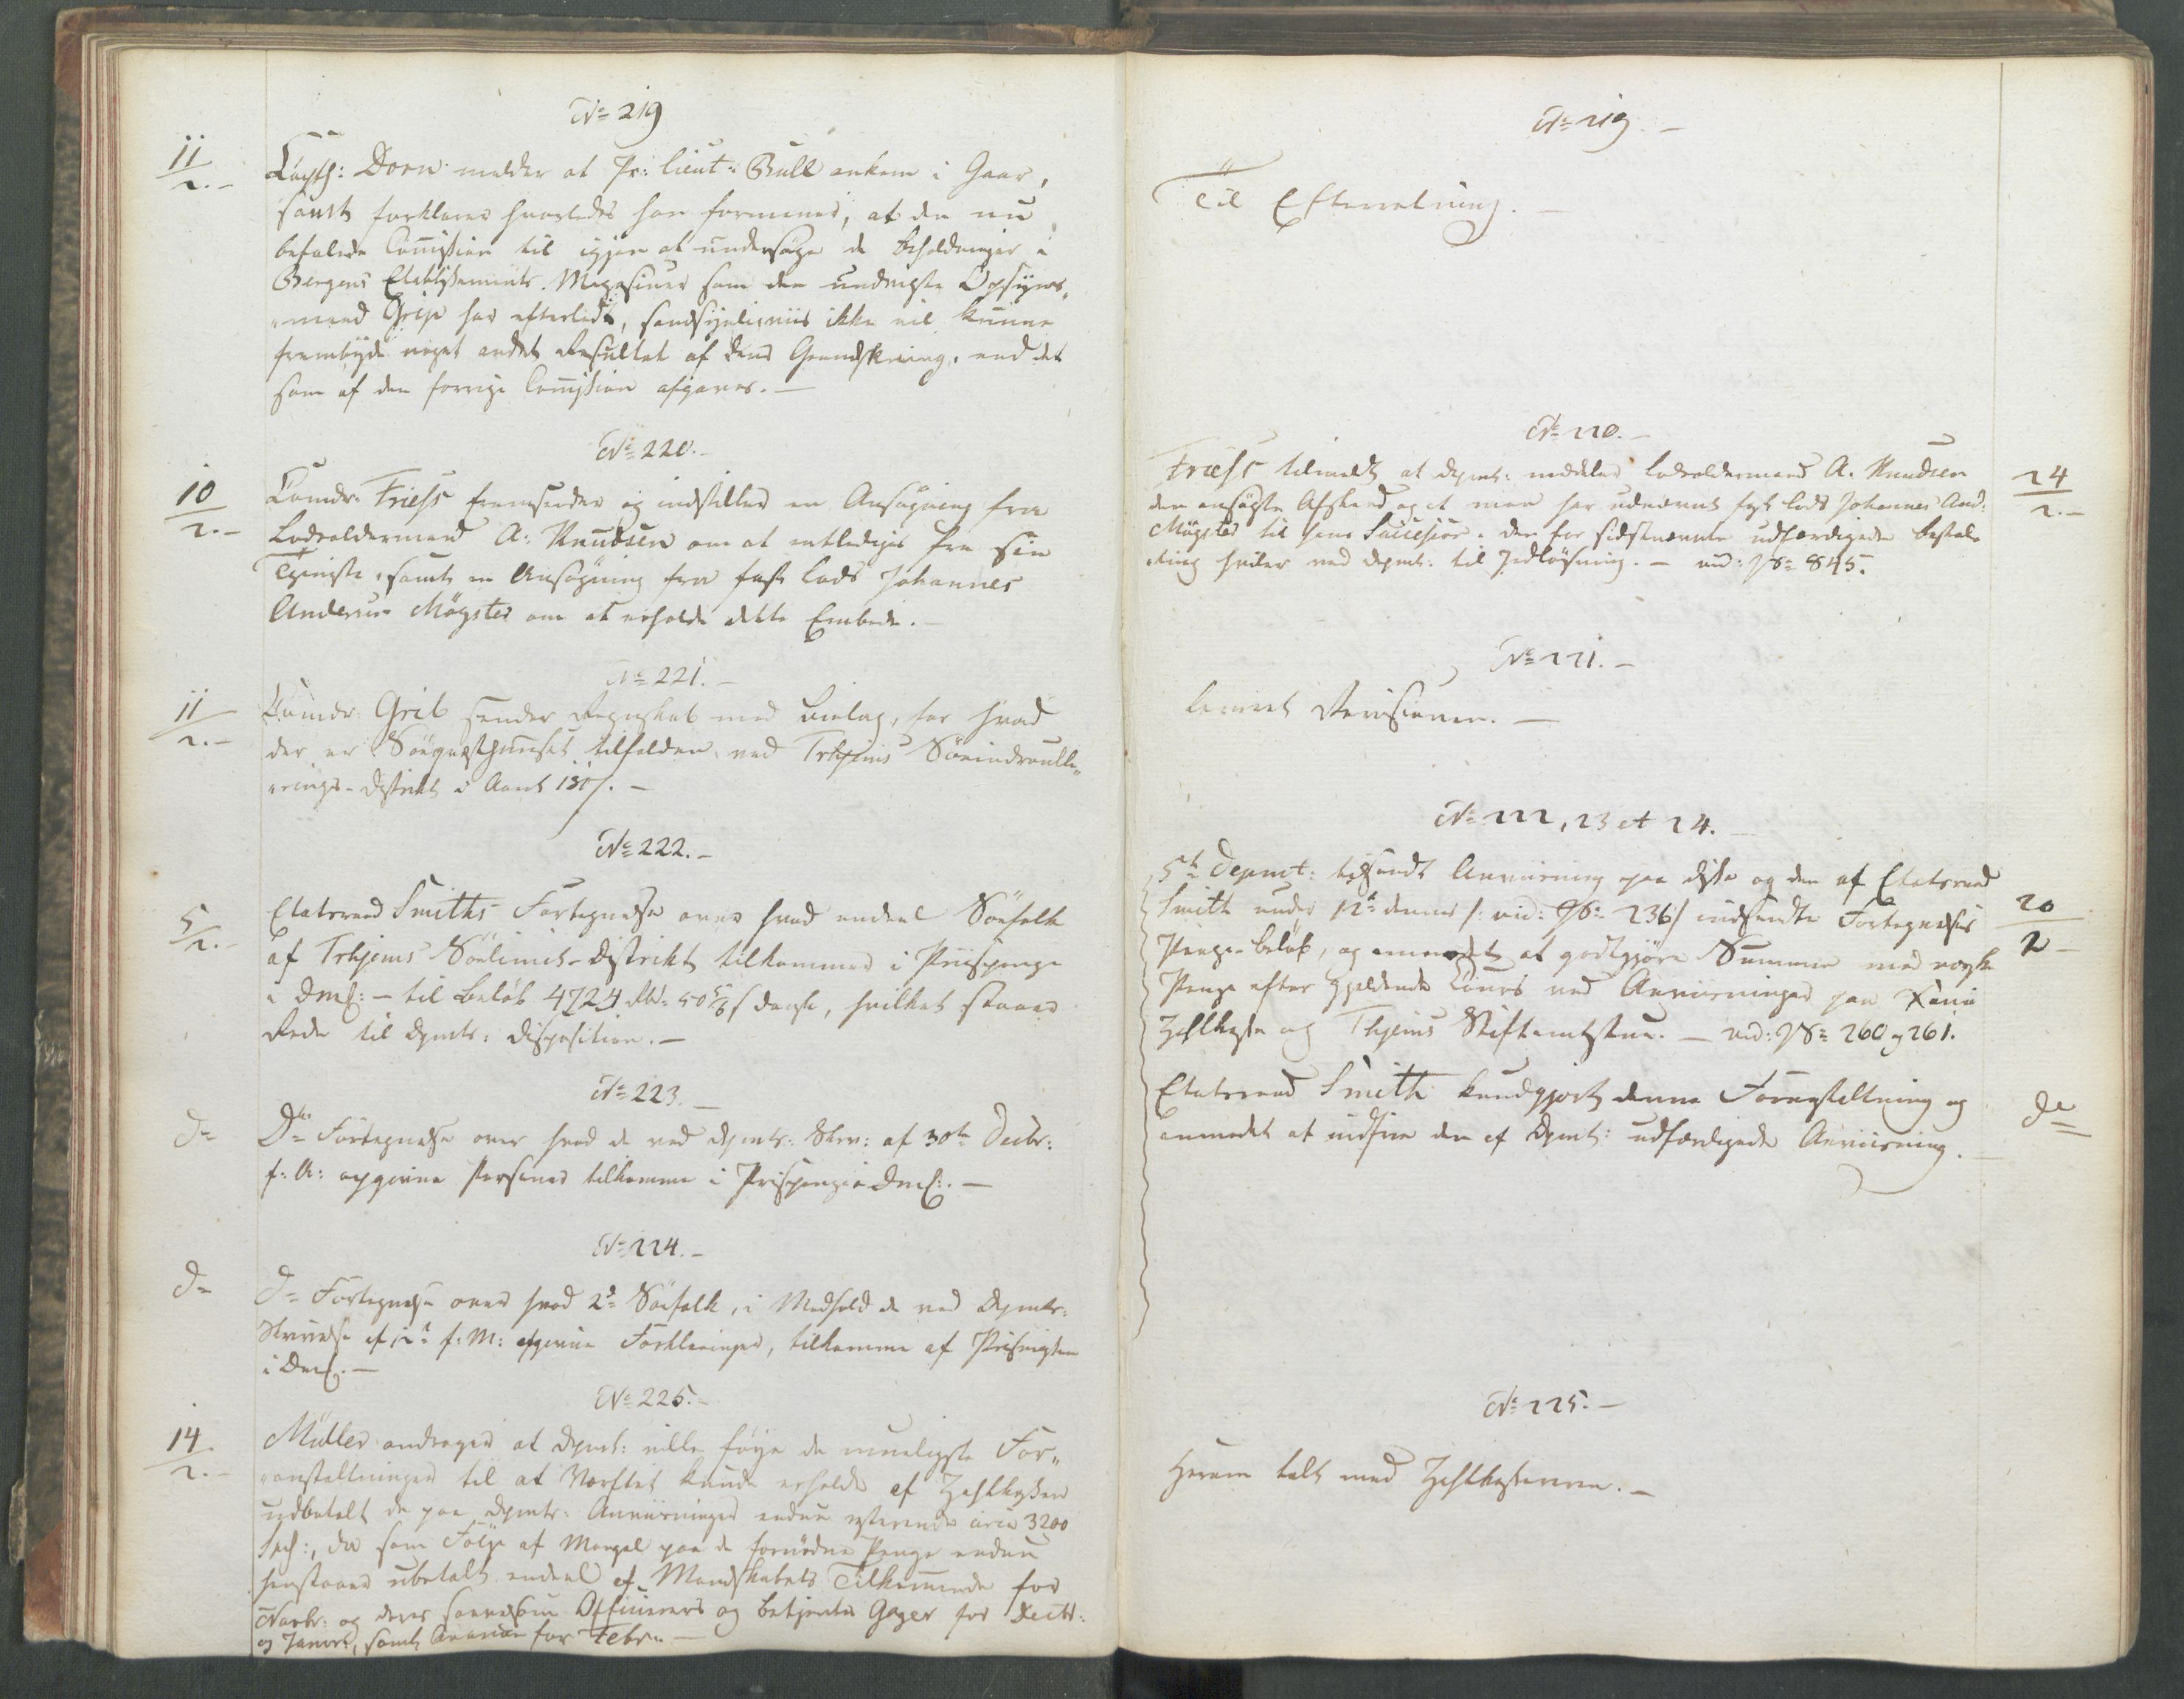 No 219
11/2.- Capth: Dorn melder at Pr: Lieut: Bull ankom i Gaar,
samt forklarer hvorledes han formener, at den nu
befalede Commission til igjen at undersøge de Beholdninger i
Bergens Etablissements Magasiner som den
mand Grip har efterladt, sandsynligviis ikke vil kunne
frembyde noget andet Resultat af dens Grandskning, end det
som af den forrige Commission afgaves.-
No 220.-
10/2.- Comdr. Friess fremsender og indstiller en Ansøgning fra
Lodsoldermand A. Knudsen om at entlediges fra sin
Tjeniste, samt en Ansøgning fra fast Lods Johannes
Andersen Møgster om at erholde dette Embede.-
No 221.-
11/2.- Comdr. Grib sender Regnskab med Bielag, for hvad
der er Søeqvæsthuuset tilfalden ved Trhjems Søeindroulle„
„rings-Distrikt i Aaret 1817.-
No 222.-
5/2.- Etatsraad Smiths Fortegnelse over hvad endeel Søefolk
af Trhjems Søelimits-Distrikt tilkommer i Priispenge
i Dmk:- til Beløb 4724 Rd: 50 5/6 s dansk, hvilket staaer
Rede til Dpmts: Disposition.-
No 223.-
do Do Fortegnelse over hvad de ved Dpmts: Skr: af 30te Decbr:
f: A: opgivne Personer tilkomme i Priispenge i Dmk:.-
No 224.-
do do Fortegnelse over hvad 2de Søefolk, i Medhold de ved Dpmts:
Skrivelse af f: M: afgivne Forklaringer, tilkomme af
i Dmk.-
No 225.-
14/2.- Müller andrager at Dpmt: ville føye de mueligste For„
„anstaltninger til at Værftet kunde erholde af Zahlkassen
udbetalt de paa Dpmts: Anviisninger endnu resterende circa 3200
Spd:, da som Følge af Mangel paa de fornødne Penge endnu
henstaaer ubetalt endeel af Mandskabets Tilkommende for
Novbr: og deres Officierers og Betjentes Gager for Decbr:
og Januar, samt for Febr.-
No 219.-
Til Efterretning.-
No 220.-
Friess tilmeldt at Dpmt: meddeler Lodsoldermand A. Knudsen 24/2.-
den ansøgte Afskeed og at man har udnævnt fast Lods Johannes And:
Møgster til hans Successor. Den for sidstnævnte udfærdigede Bestal„
„ling hviler ved Dpmt: til Indløsning.- vid: No 845.
No 221.-
Leveret Revisionen.-
No 222, 23 et 24.-
5te Depmt: tilsendt Anviisning paa disse og den af Etatsraad
Smith under 12te dennes /: vid: No 236/ indsendte Fortegnelses 20/2-
Penge-Beløb, og anmodet at godtgjøre Summen med norske
Penge efter gjeldende Cours ved Anviisninger paa Xania
Zahlkasse og Thjems Stiftamtstue.- vid: No 260 og 261.
Etatsraad Smith kundgjort denne Foranstaltning og do
anmodet at indfrie den af Dpmt: udfærdigede Anviisning.
No 225.-
Herom talt med Zahlkassereren.-